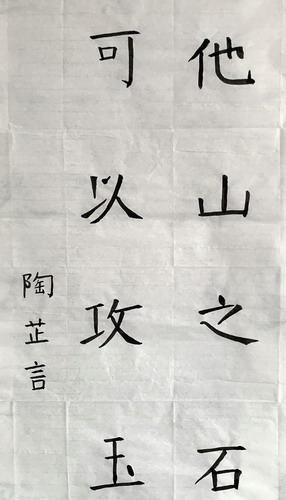 他山之石
可以攻玉
陶芷言